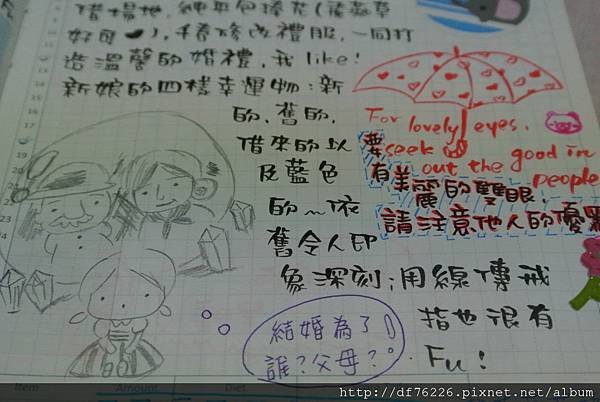 借場地，純平包捧花(薩蕬草
好可♥)，手縫修改禮服，一同打
造溫馨的婚禮，我like!
新娘的四樣幸運物：新
的，舊的，
借來的以
及藍色
的～依
舊令人印
象深刻；用線傳戒
指也很有
Fu!
For lovely eyes.
seek out the good in people
要有美麗的雙眼，
請注意他人的優
結婚為了
誰?父母?
Item Amount Diet
http://df76226.pixnet.net/album